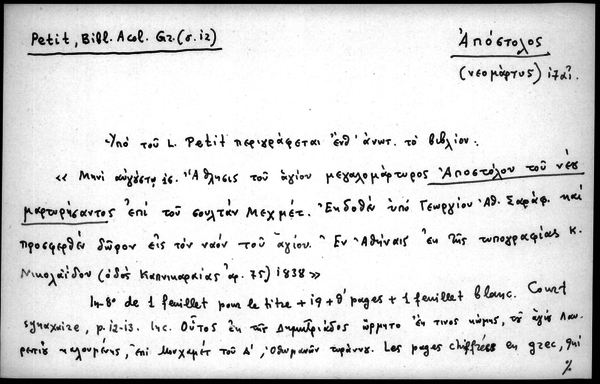 Petit, Bibl. Acol. Gr. (σ. 12)
Ἀπόστολος
(νεομάρτυς)
Ὑπὸ τοῦ L. Petit περιγράφεται ἔνθ' ἀνωτ. τὸ βιβλίον:
« Μηνὶ αὐγούστῳ 16. Ἄθλησις τοῦ ἁγίου μεγαλομάρτυρος Ἀποστόλου τοῦ νέου
μαρτυρήσαντος ἐπὶ τοῦ σουλτὰν Μεχμέτ. Ἐκδοθὲν ὑπὸ Γεωργίου Ἀθ. Σαράφ. καὶ
προσφερθὲν δῶρον εἰς τὸν ναὸν τοῦ ἁγίου. Ἐν Ἀθήναις ἐκ τῆς τυπογραφίας Κ.
Νικολαΐδου (ὁδὸς Καπνικαρέας ἀρ. 75) 1838 »
In-8° de 1 feuillet pour le titre + 19 + θ' pages + 1 feuillet blanc. Court
synaxaire, p. 12-13. Inc. Οὗτος ἐκ τῆς Δημητριάδος ὥρμητο ἔκ τινος κώμης, τοῦ ἁγίου Λαυ-
ρεντίου καλουμένης, ἐπὶ Μουχαμὲτ τοῦ Δ', Ὀθωμανῶν τυράννου. Les pages chiffrées en grec, qui
%